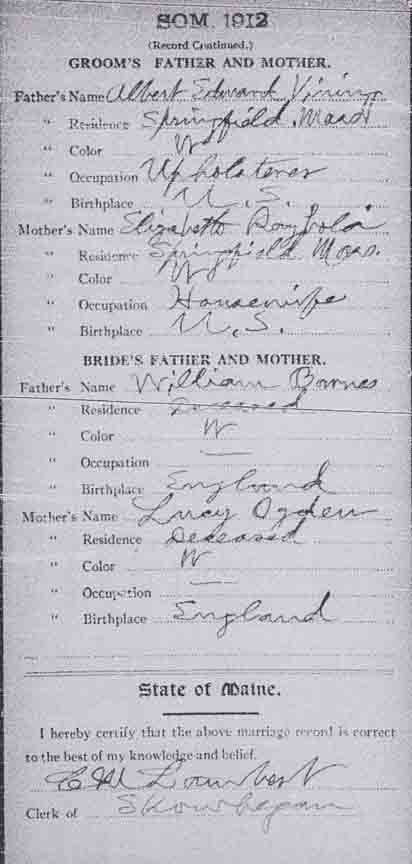 SOM. 1912
(Record Continued.)
GROOM'S FATHER AND MOTHER.
Father's Name Albert Edward Vining
" Residence Springfield Mass
" Color W
" Occupation Upholsterer
" Birthplace U.S.
Mother's Name Elizabeth
" Residence Springfield Mass.
" Color W
" Occupation Housewife
" Birthplace U.S.
BRIDE'S FATHER AND MOTHER.
Father's Name William Barnes
" Residence Deceased
" Color W
" Occupation —
" Birthplace England
Mother's Name Lucy Ogden
" Residence Deceased
" Color W
" Occupation —
" Birthplace England
State of Maine.
I hereby certify that the above marriage record is correct
to the best of my knowledge and belief.
Lambert
Clerk of Skowhegan